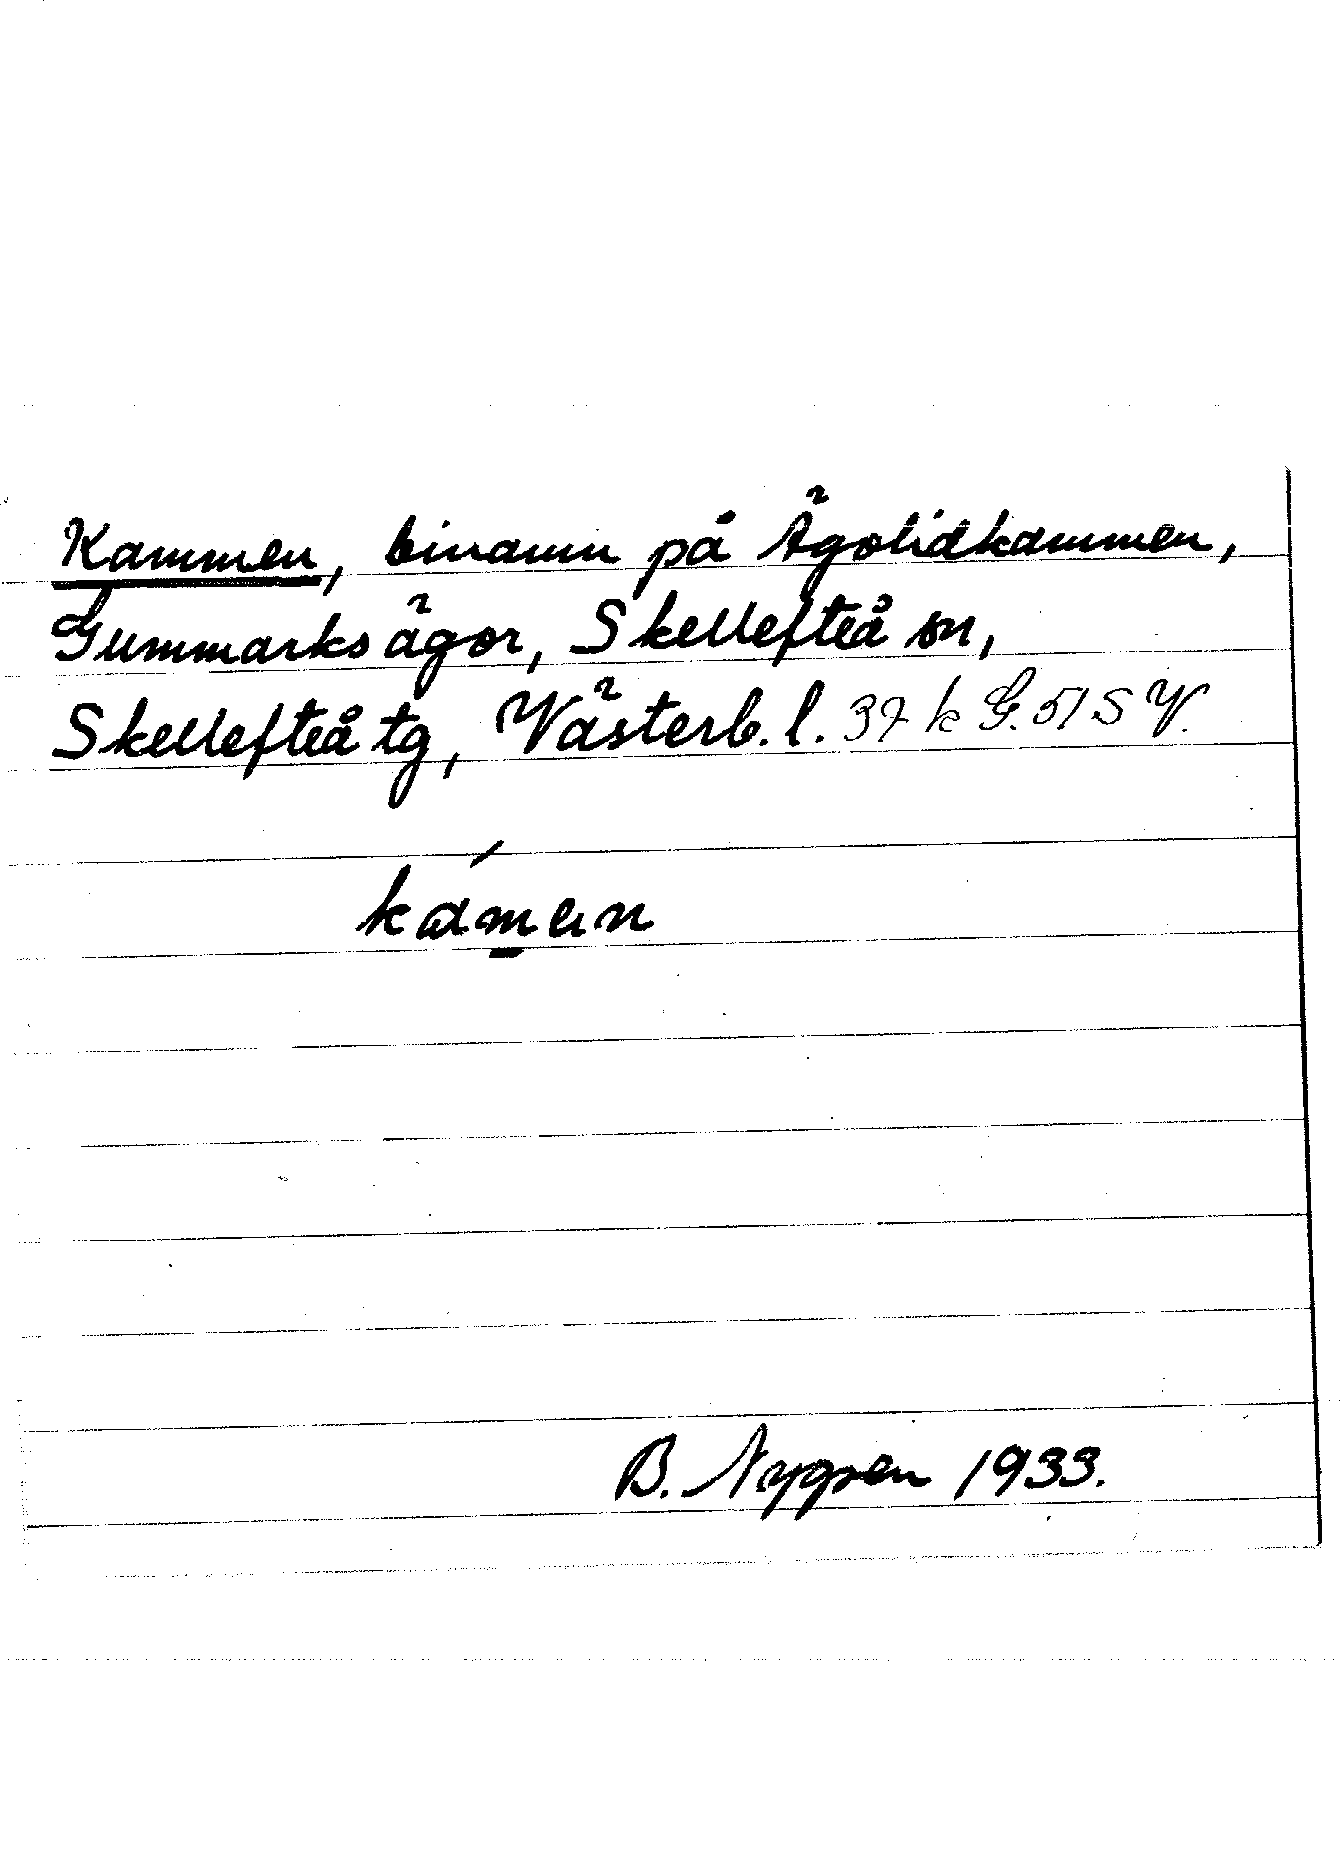 Kammen, binamn på Ägolidkammen,
Gummarks ägor, Skellefteå sn,
Skellefteå tg, Västerb. l. 37 k G. 51 S V.
kámen
B. Nygren 1933.